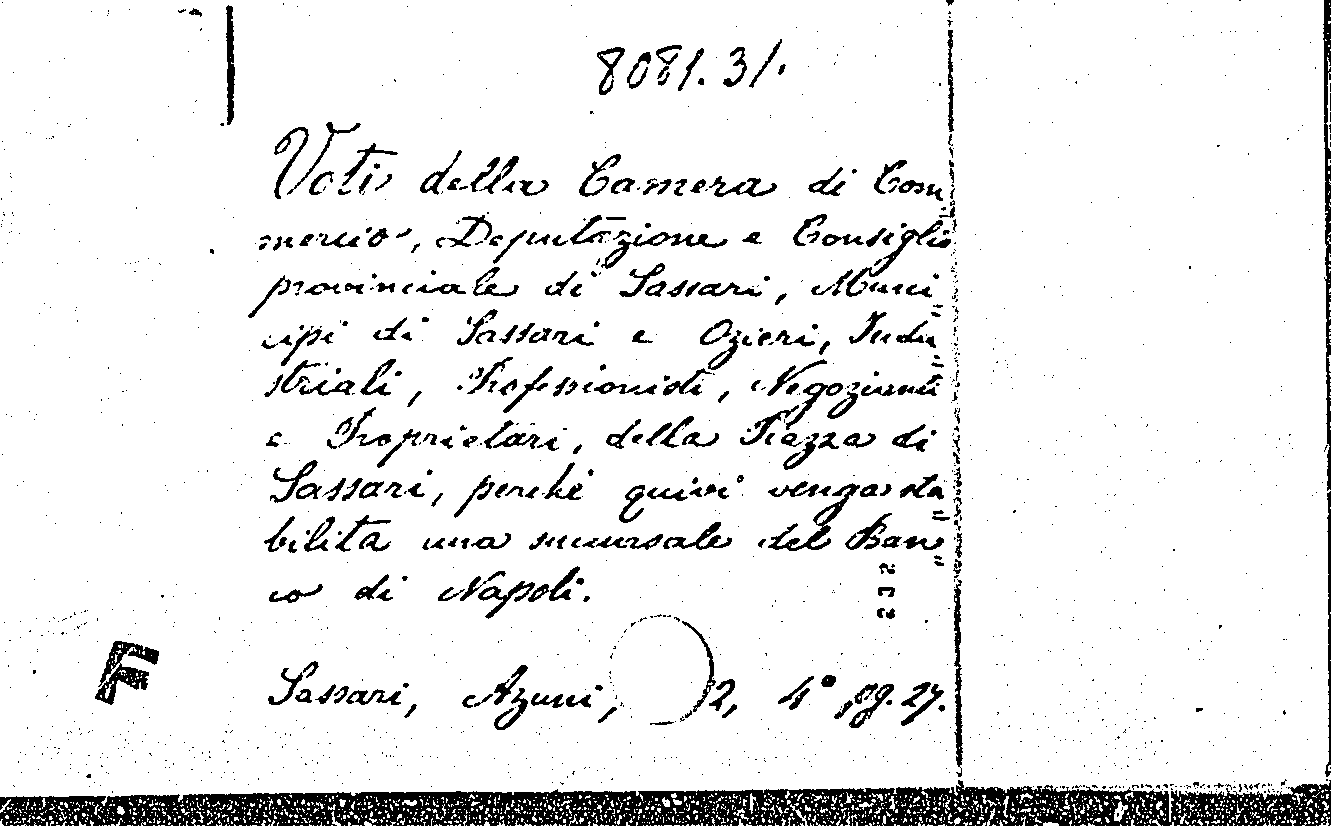 8081.31.
Voti della Camera di Com=
mercio, Deputazione e Consiglio
provinciale di Sassari, Muni=
cipi di Sassari e Ozieri, Indu=
striali, Professionisti, Negozianti
e Proprietari, della Piazza di
Sassari, perchè quivi venga sta=
bilita una succursale del Ban=
co di Napoli.
232
F
Sassari, Azuni, 2, 4° pg. 27.